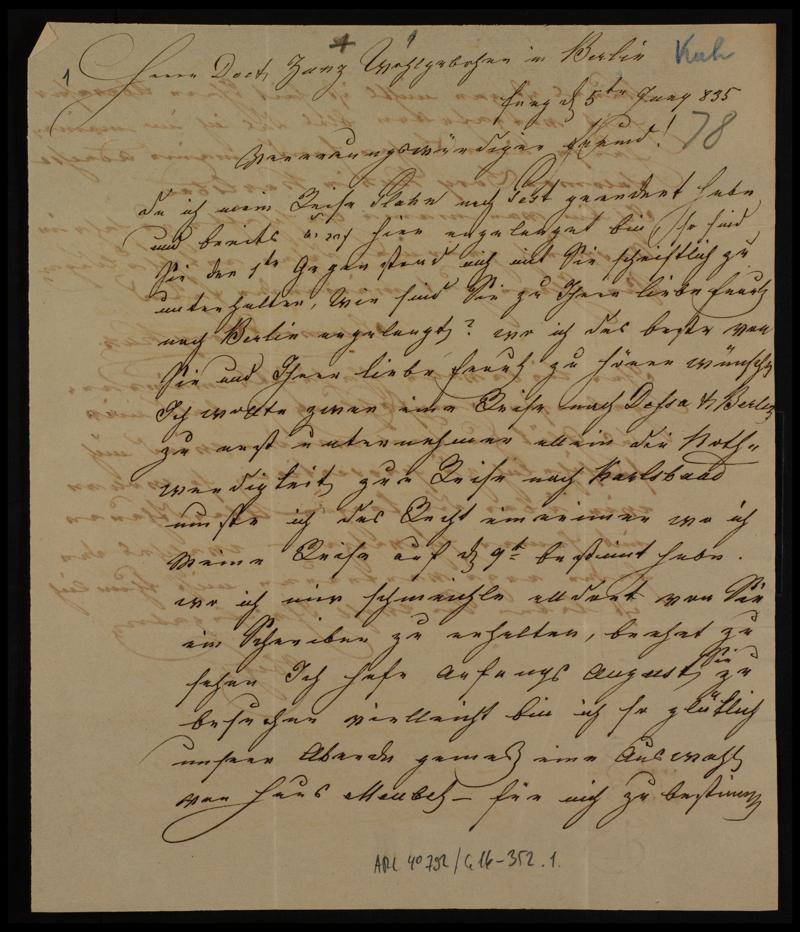 1
Herrn Doct. Zunz Wohlgebohren in Berlin
Kuh
Prag d 5ten Juny 835
78
Verehrungswürdiger Freund!
da ich mein Reise Plahn nach Pest geendert habe
und bereits hier angelangt bin, so sind
Sie der 1te Gegenstand mich mit Sie schriftlich zu
unterhalten, Wie sind Sie zu Ihrer liebe Frau
nach Berlin angelangt? wo ich das beste von
Sie und Ihrer liebe Frau zu hören wünsche
Ich wollte zwar eine Reise nach & Berlin
zu erst unternehmen allein die Noth-
wendigkeit zur Reise nach Karlsbaad
musste ich das Recht einreimen wo ich
meine Reise auf d 9t bestimt habe.
wo ich mir schmeichle alldort von Sie
ein Schreiben zu erhalten, beehrt zu
sehen Ich hofe Anfangs August Sie zu
besuchen vielleicht bin ich so glüklich
unser Abrede gemes eine Auswahl
von Haus Meubel – für mich zu bestimen
ARC 4° 792/G16-352.1.